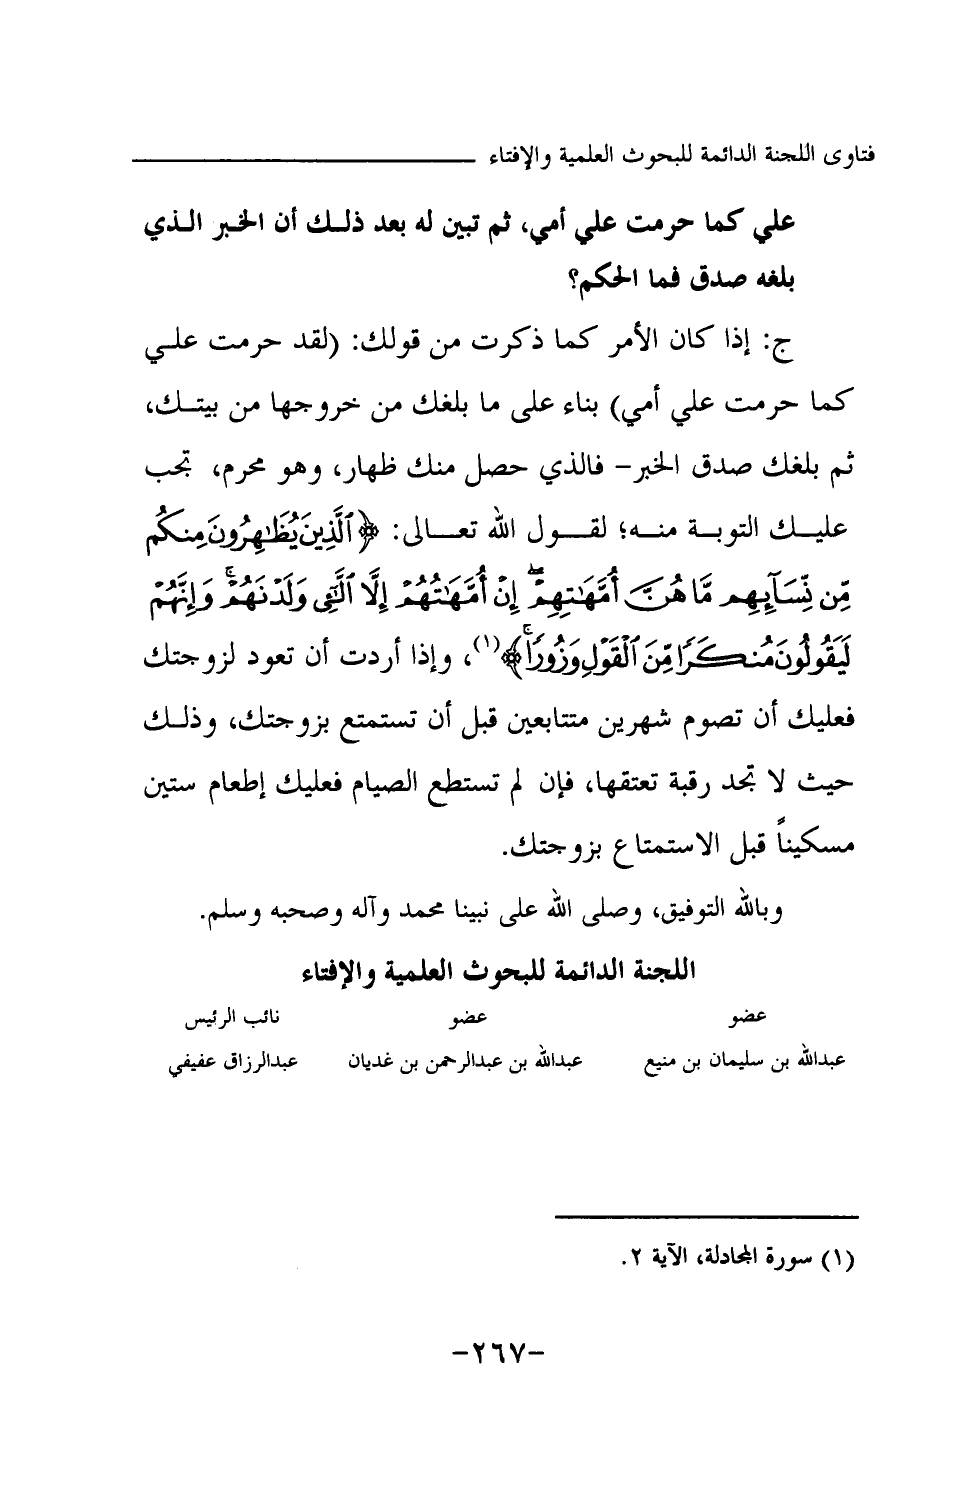 فتاوى اللجنة الدائمة للبحوث العلمية والإفتاء
علي كما حرمت علي أمي، ثم تبين له بعد ذلـك أن الخـبر الـذي
بلغه صدق فما الحكم؟
ج: إذا كان الأمر كما ذكرت من قولك: (لقد حرمت علـي
كما حرمت علي أمي) بناء على ما بلغك من خروجها من بيتـك،
ثم بلغك صدق الخبر- فالذي حصل منك ظهار، وهو محرم، تجب
عليـك التوبـة منـه؛ لقـول الله تعـالى: ﴿ٱلَّذِينَ يُظَٰهِرُونَ مِنكُم
مِّن نِّسَآئِهِم مَّا هُنَّ أُمَّهَٰتِهِمْ ۖ إِنْ أُمَّهَٰتُهُمْ إِلَّا ٱلَّٰٓـِٔى وَلَدْنَهُمْ ۚ وَإِنَّهُمْ
لَيَقُولُونَ مُنكَرًا مِّنَ ٱلْقَوْلِ وَزُورًا ۚ﴾(١)، وإذا أردت أن تعود لزوجتك
فعليك أن تصوم شهرين متتابعين قبل أن تستمتع بزوجتك، وذلـك
حيث لا تجد رقبة تعتقها، فإن لم تستطع الصيام فعليك إطعام ستين
مسكيناً قبل الاستمتاع بزوجتك.
وبالله التوفيق، وصلى الله على نبينا محمد وآله وصحبه وسلم.
اللجنة الدائمة للبحوث العلمية والإفتاء
عضو عضو نائب الرئيس
عبدالله بن سليمان بن منيع عبدالله بن عبدالرحمن بن غديان عبدالرزاق عفيفي
(١) سورة المجادلة، الآية ٢.
-٢٦٧-